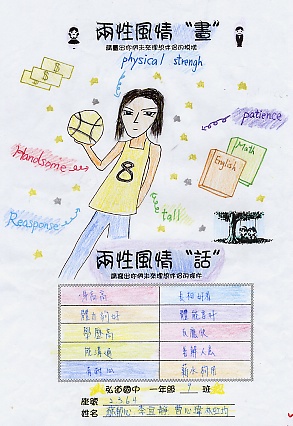 兩性風情 “畫”
請畫出你們未來理想伴侶的模樣
physical strengh
8
patience
Math
English
Handsome
Reasponse
tall
兩性風情 “話”
請寫出你們未來理想伴侶的條件
身高高
長相好看
體力夠好
體能要好
學歷高
反應快
能溝通
善解人意
有耐心
薪水夠用
弘道國中 一年級 1 班
座號
2 3 6 4
姓名